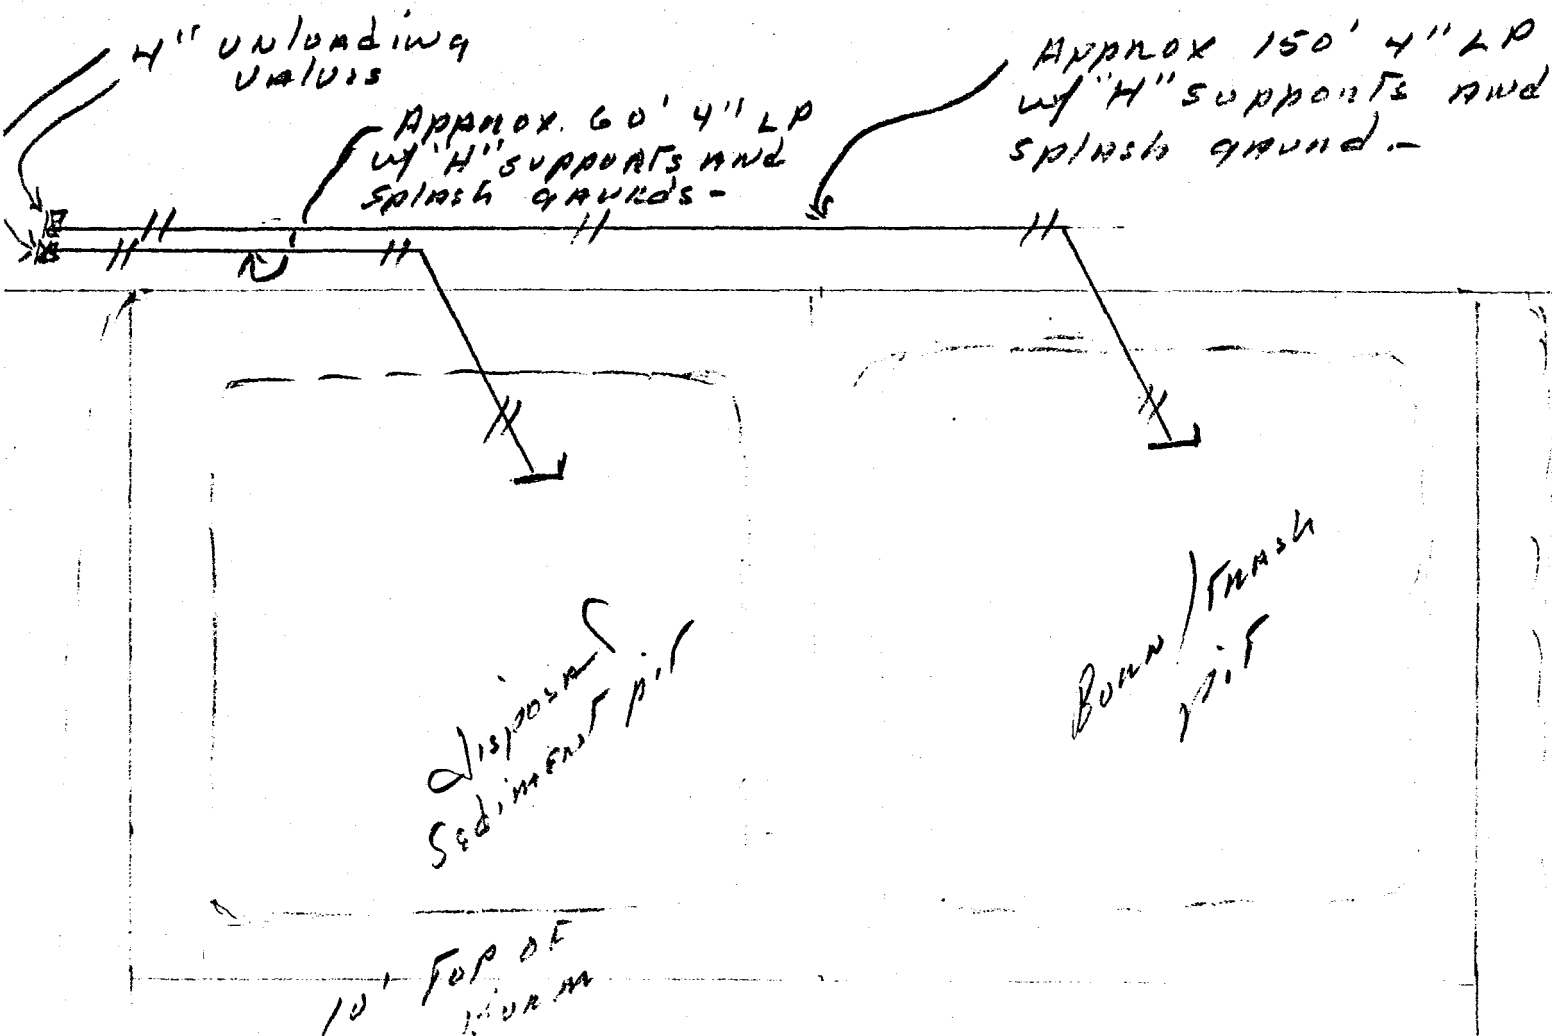 4" unloading
valves
Approx. 60' 4" LP
w/ "H" supports and
splash gaurds -
Approx 150' 4" LP
w/ "H" supports and
splash gaurd. -
disposal
Sediment pit
Burn / trash
pit
10' Top of